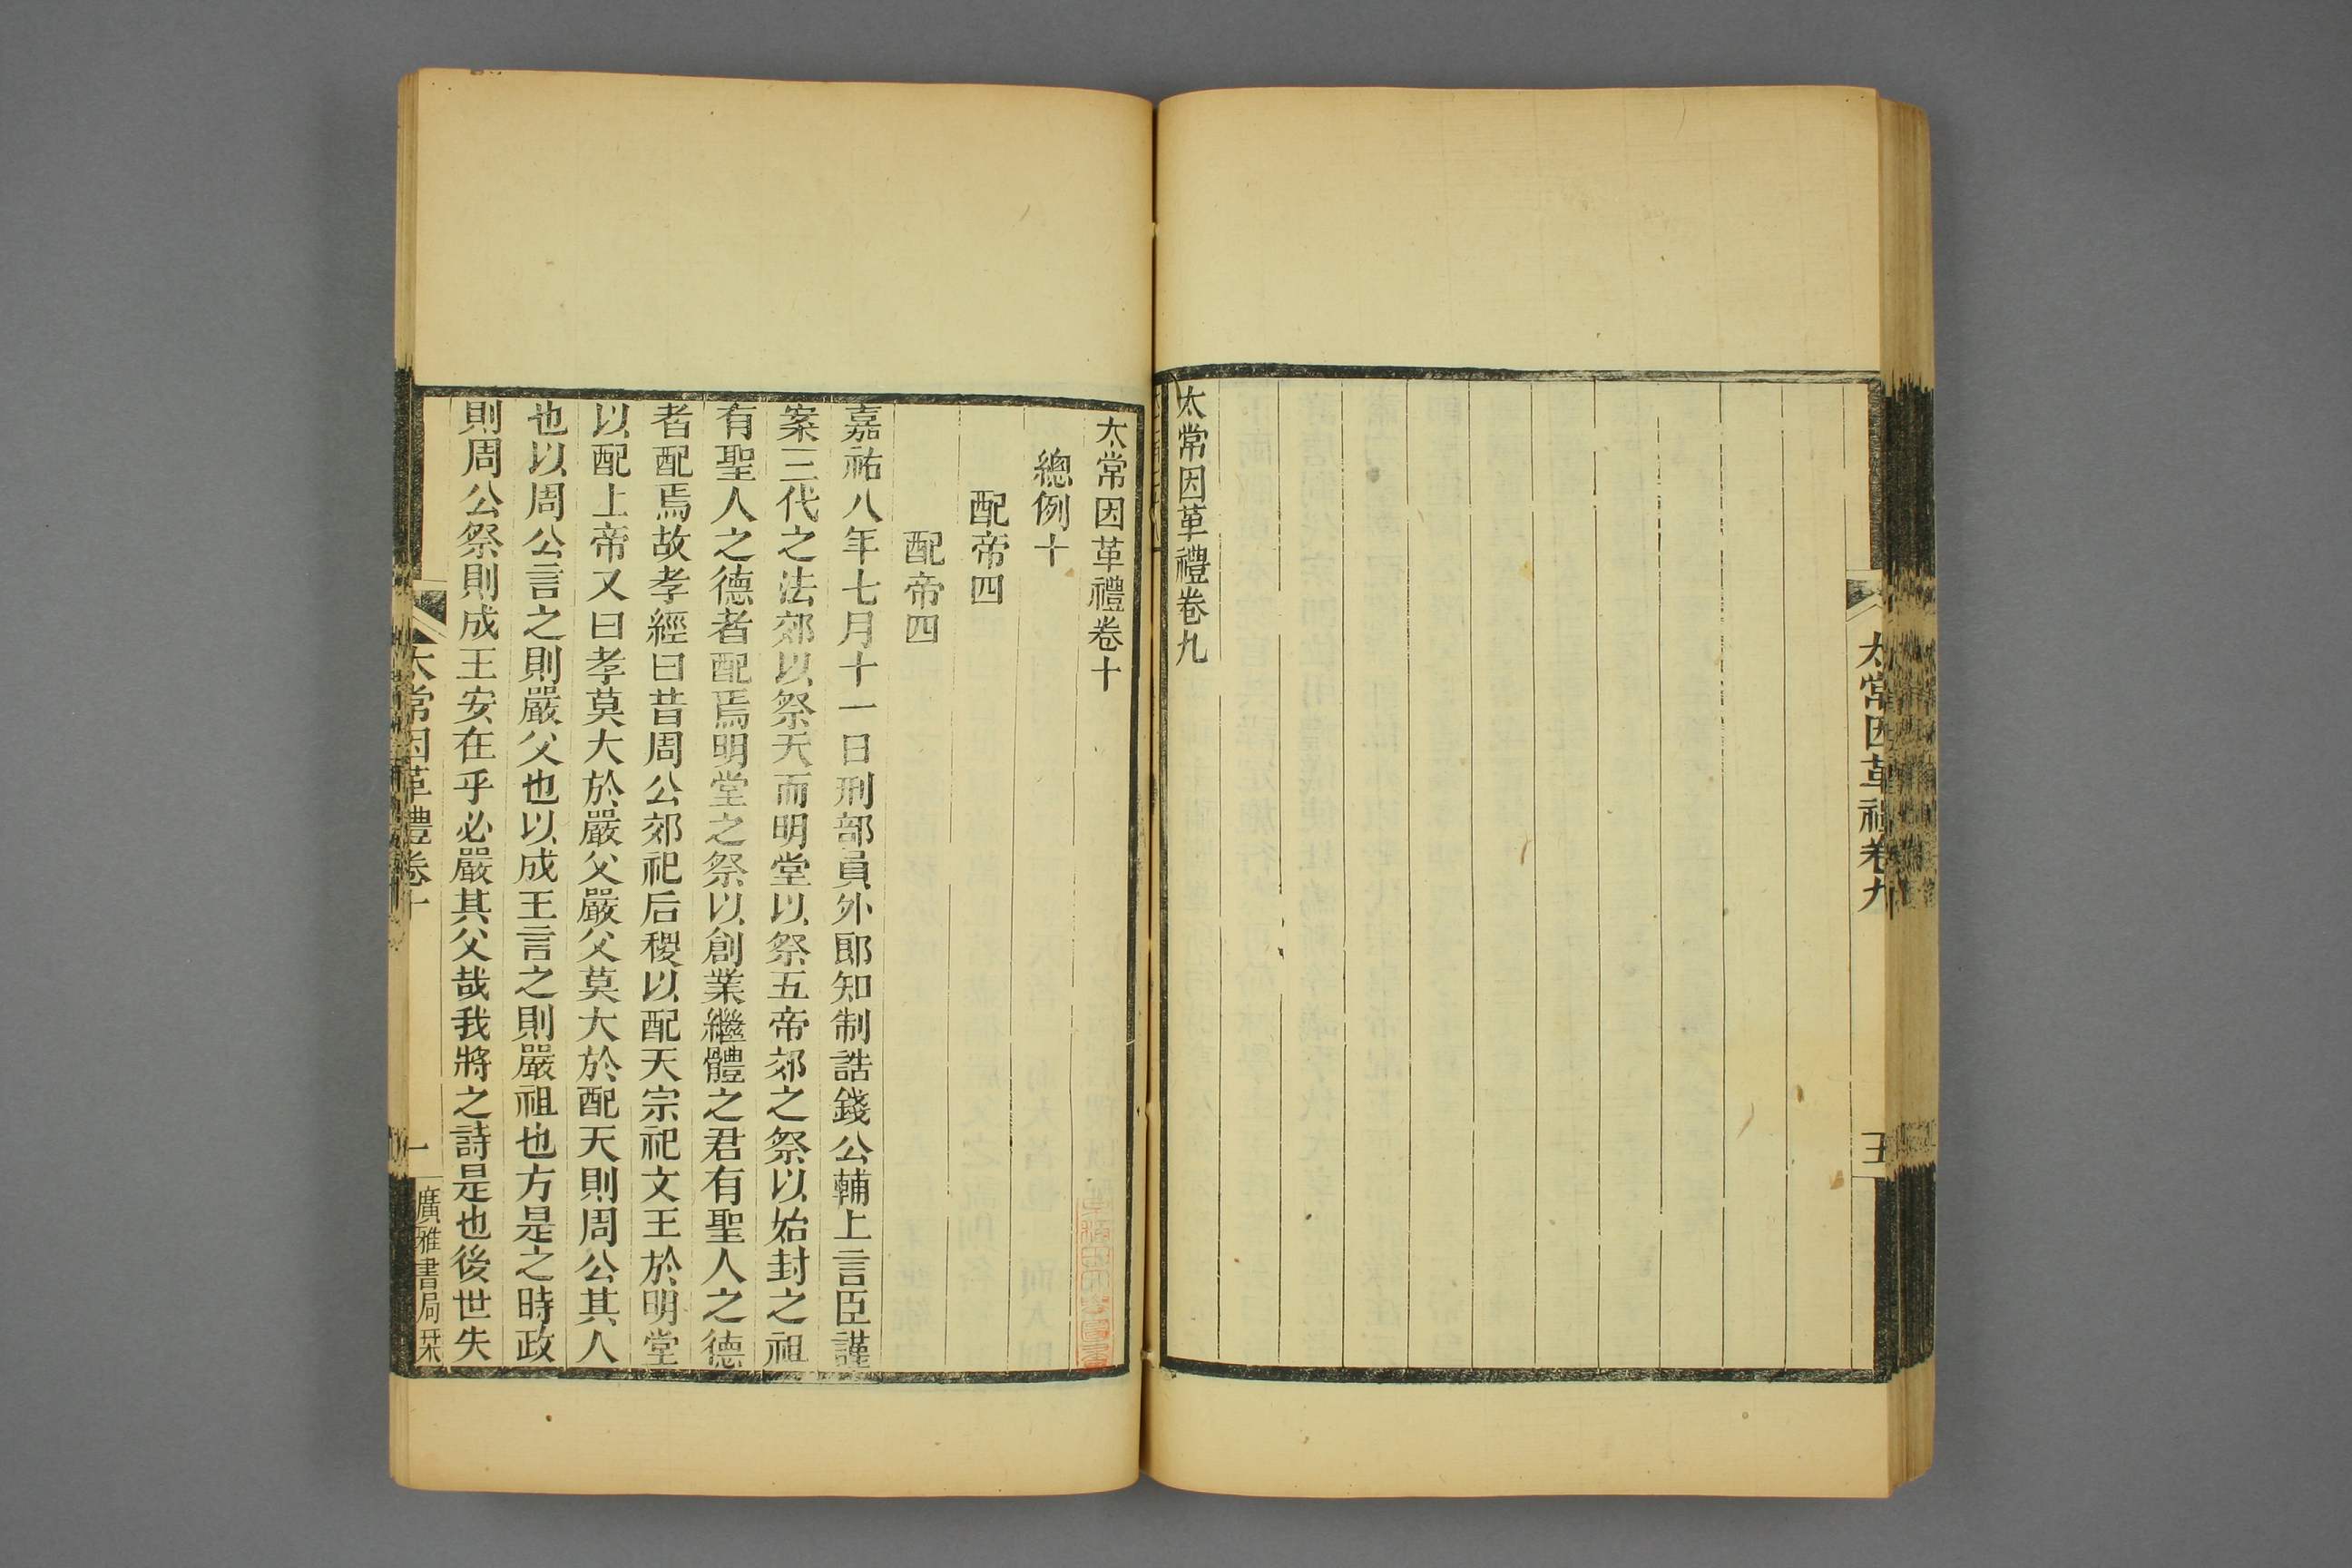 太常因革禮卷九
五
太常因革禮卷九
太常因革禮卷十
總例十
配帝四
配帝四
嘉祐八年七月十一日刑部員外郎知制誥錢公輔上言臣謹
案三代之法郊以祭天而明堂以祭五帝郊之祭以始封之祖
有聖人之德者配焉明堂之祭以創業繼體之君有聖人之德
者配焉故孝經曰昔周公郊祀后稷以配天宗祀文王於明堂
以配上帝又曰孝莫大於嚴父嚴父莫大於配天則周公其人
也以周公言之則嚴父也以成王言之則嚴祖也方是之時政
則周公祭則成王安在乎必嚴其父哉我將之詩是也後世失
太常因革禮卷十
一
廣雅書局栞